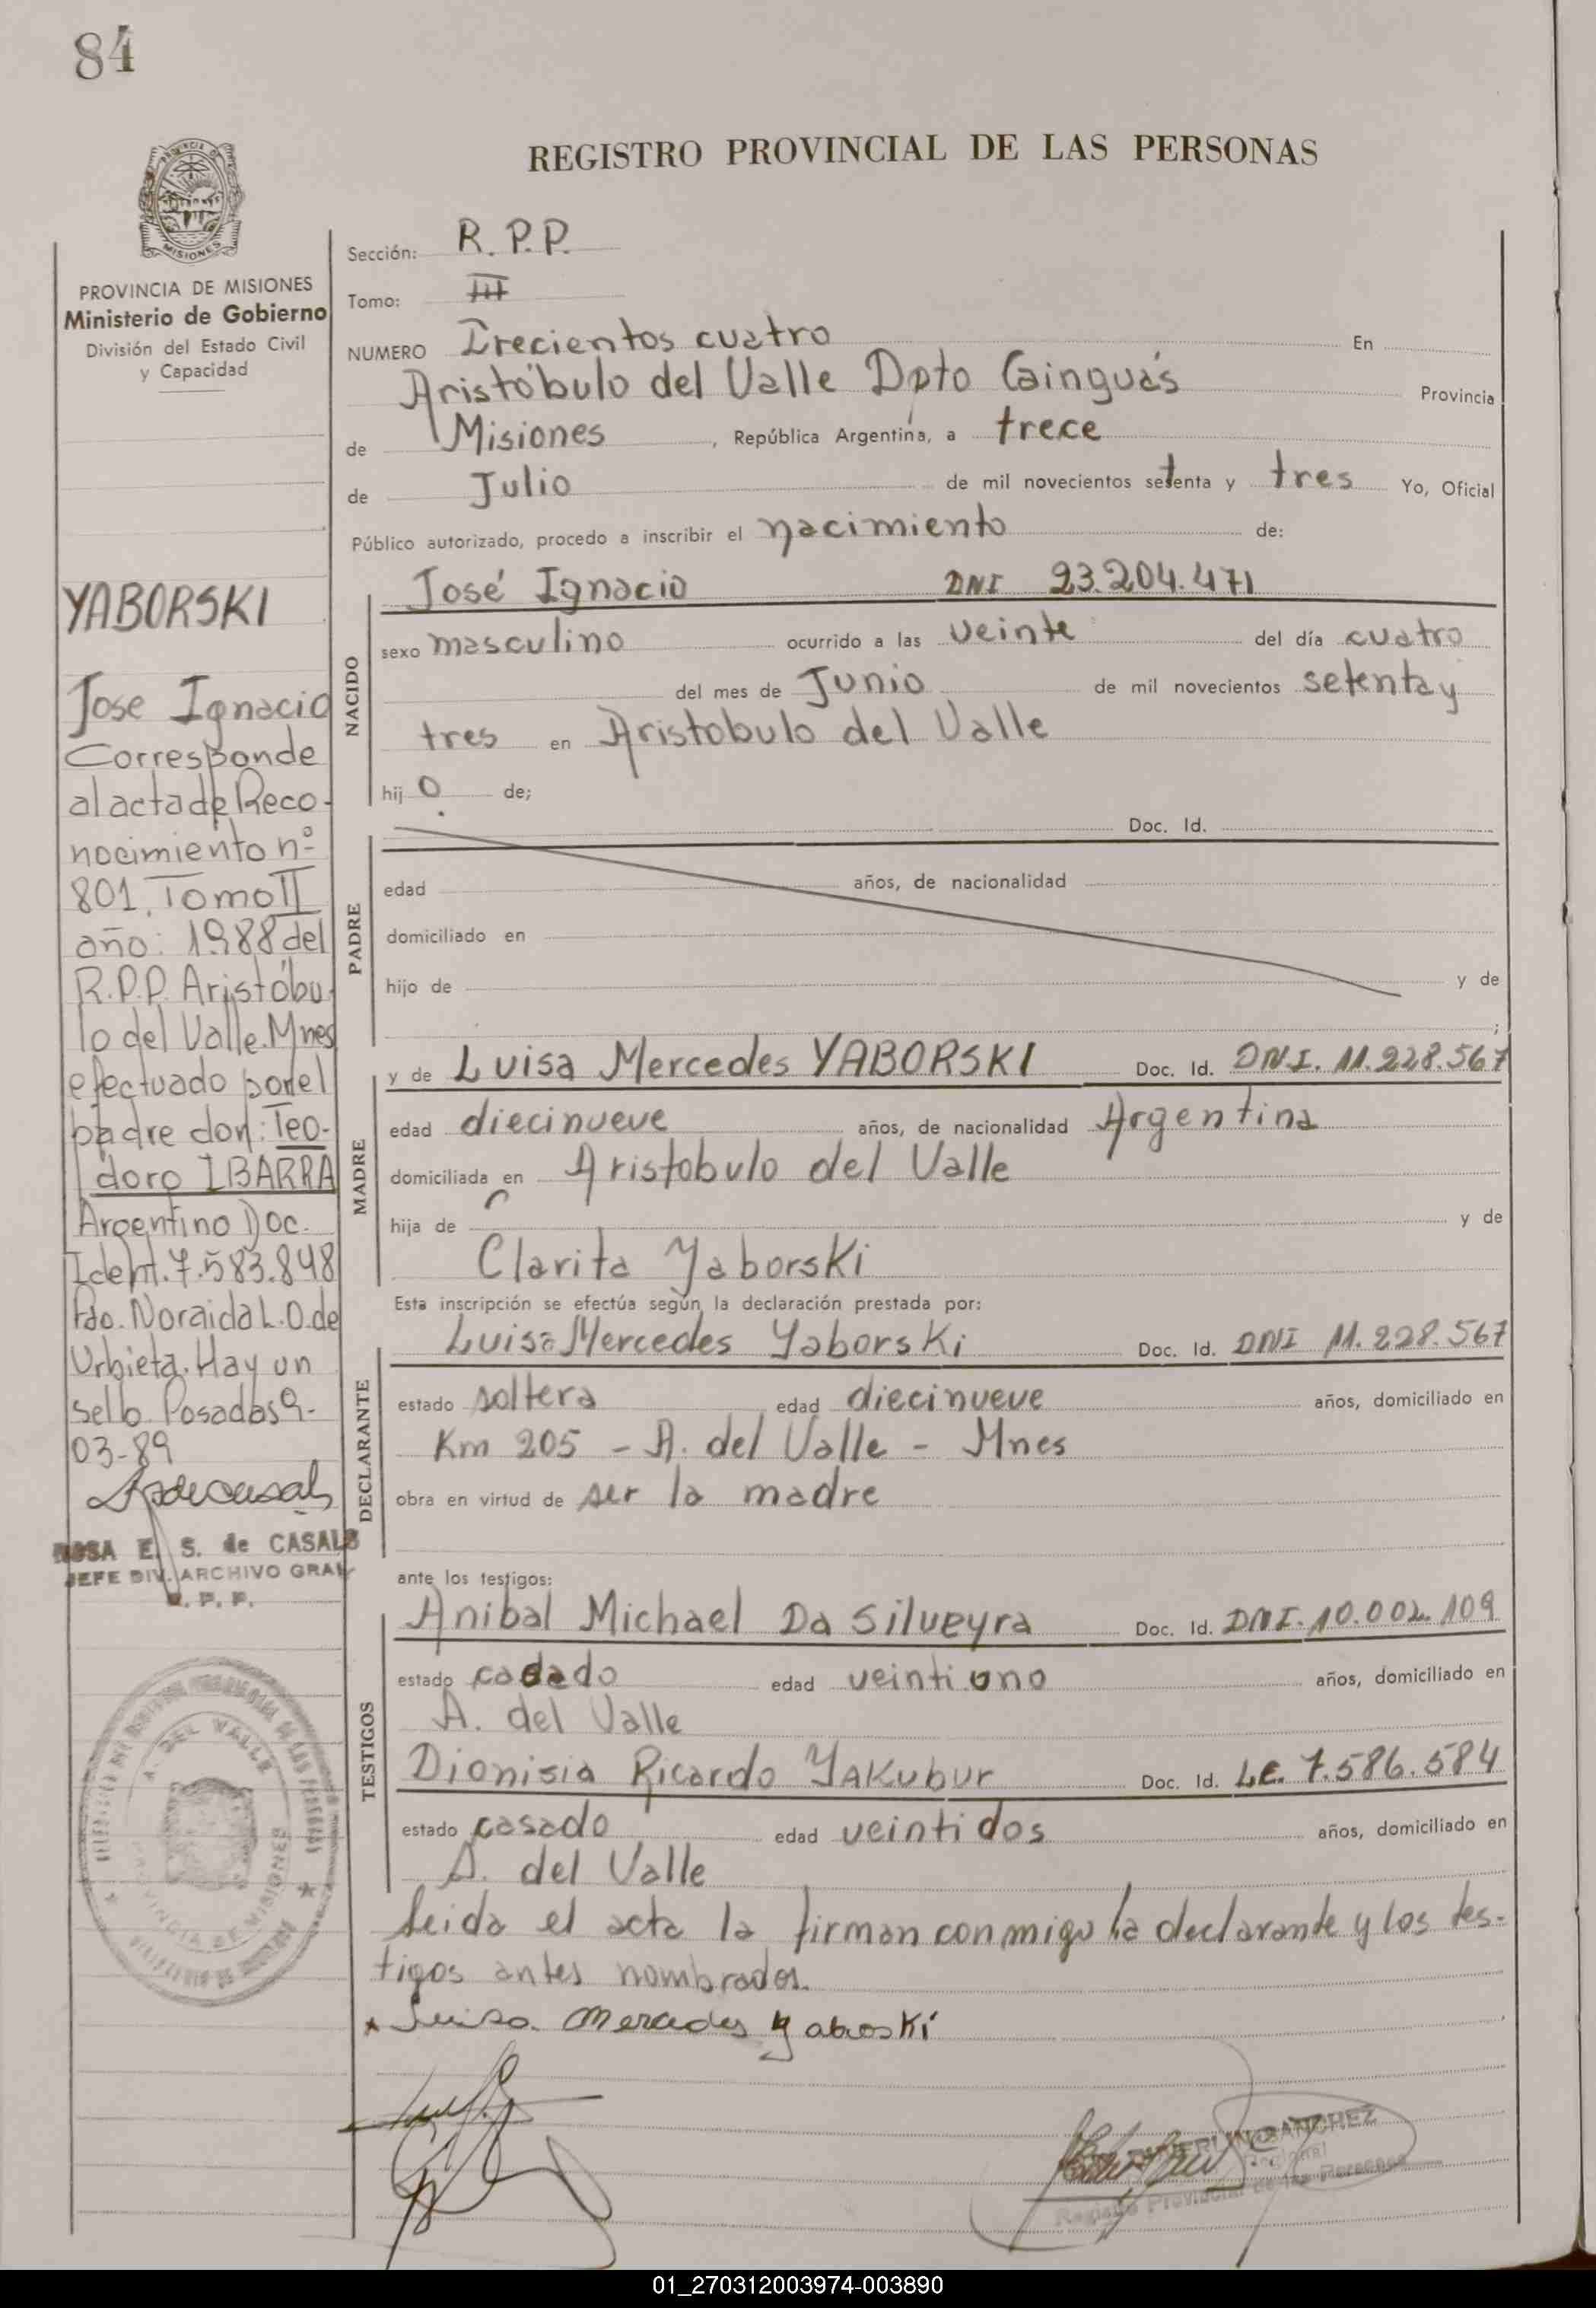 84
REGISTRO PROVINCIAL DE LAS PERSONAS
MISIONES
PROVINCIA DE MISIONES
Ministerio de Gobierno
División del Estado Civil
y Capacidad
YABORSKI
Jose Ignacio
Corresponde
al acta de Reco-
nocimiento nº
801. Tomo II
año: 1988 del
R.P.P. Aristóbu
lo del Valle. Mnes
efectuado por el
padre don: Teo-
doro IBARRA
Argentino Doc.
Ident. 7.583.848
Fdo. Noraida L. O. de
Urbieta. Hay un
sello Posadas 9-
03-89
ROSA E. S. de CASALS
JEFE DIV. ARCHIVO GRAL
R. P. P.
A. DEL VALLE
PROVINCIA DE MISIONES
Sección: R. P. P.
Tomo: III
NUMERO Trecientos cuatro En
Aristóbulo del Valle Dpto Cainguás Provincia
de Misiones, República Argentina, a trece
de Julio de mil novecientos setenta y tres Yo, Oficial
Público autorizado, procedo a inscribir el nacimiento de:
NACIDO
José Ignacio DNI 23.204.471
sexo masculino ocurrido a las veinte del día cuatro
del mes de Junio de mil novecientos setenta y
tres en Aristobulo del Valle
hij o de;
PADRE
Doc. Id.
edad años, de nacionalidad
domiciliado en
hijo de y de
;
MADRE
y de Luisa Mercedes YABORSKI Doc. Id. DNI. 11.228.567
edad diecinueve años, de nacionalidad Argentina
domiciliada en Aristobulo del Valle
hija de y de
Clarita Yaborski
Esta inscripción se efectúa según la declaración prestada por:
DECLARANTE
Luisa Mercedes Yaborski Doc. Id. DNI 11.228.567
estado soltera edad diecinueve años, domiciliado en
Km 205 - A. del Valle - Mnes
obra en virtud de ser la madre
ante los testigos:
TESTIGOS
Anibal Michael Da Silveyra Doc. Id. DNI. 10.002.109
estado casado edad veintiuno años, domiciliado en
A. del Valle
Dionisia Ricardo Yakubur Doc. Id. L.E. 7.586.584
estado casado edad veintidos años, domiciliado en
A. del Valle
leida el acta la firman conmigo la declarante y los tes-
tigos antes nombrados.
Luisa Mercedes Yaboski
SANCHEZ
Registro Provincial de las Personas
01_270312003974-003890